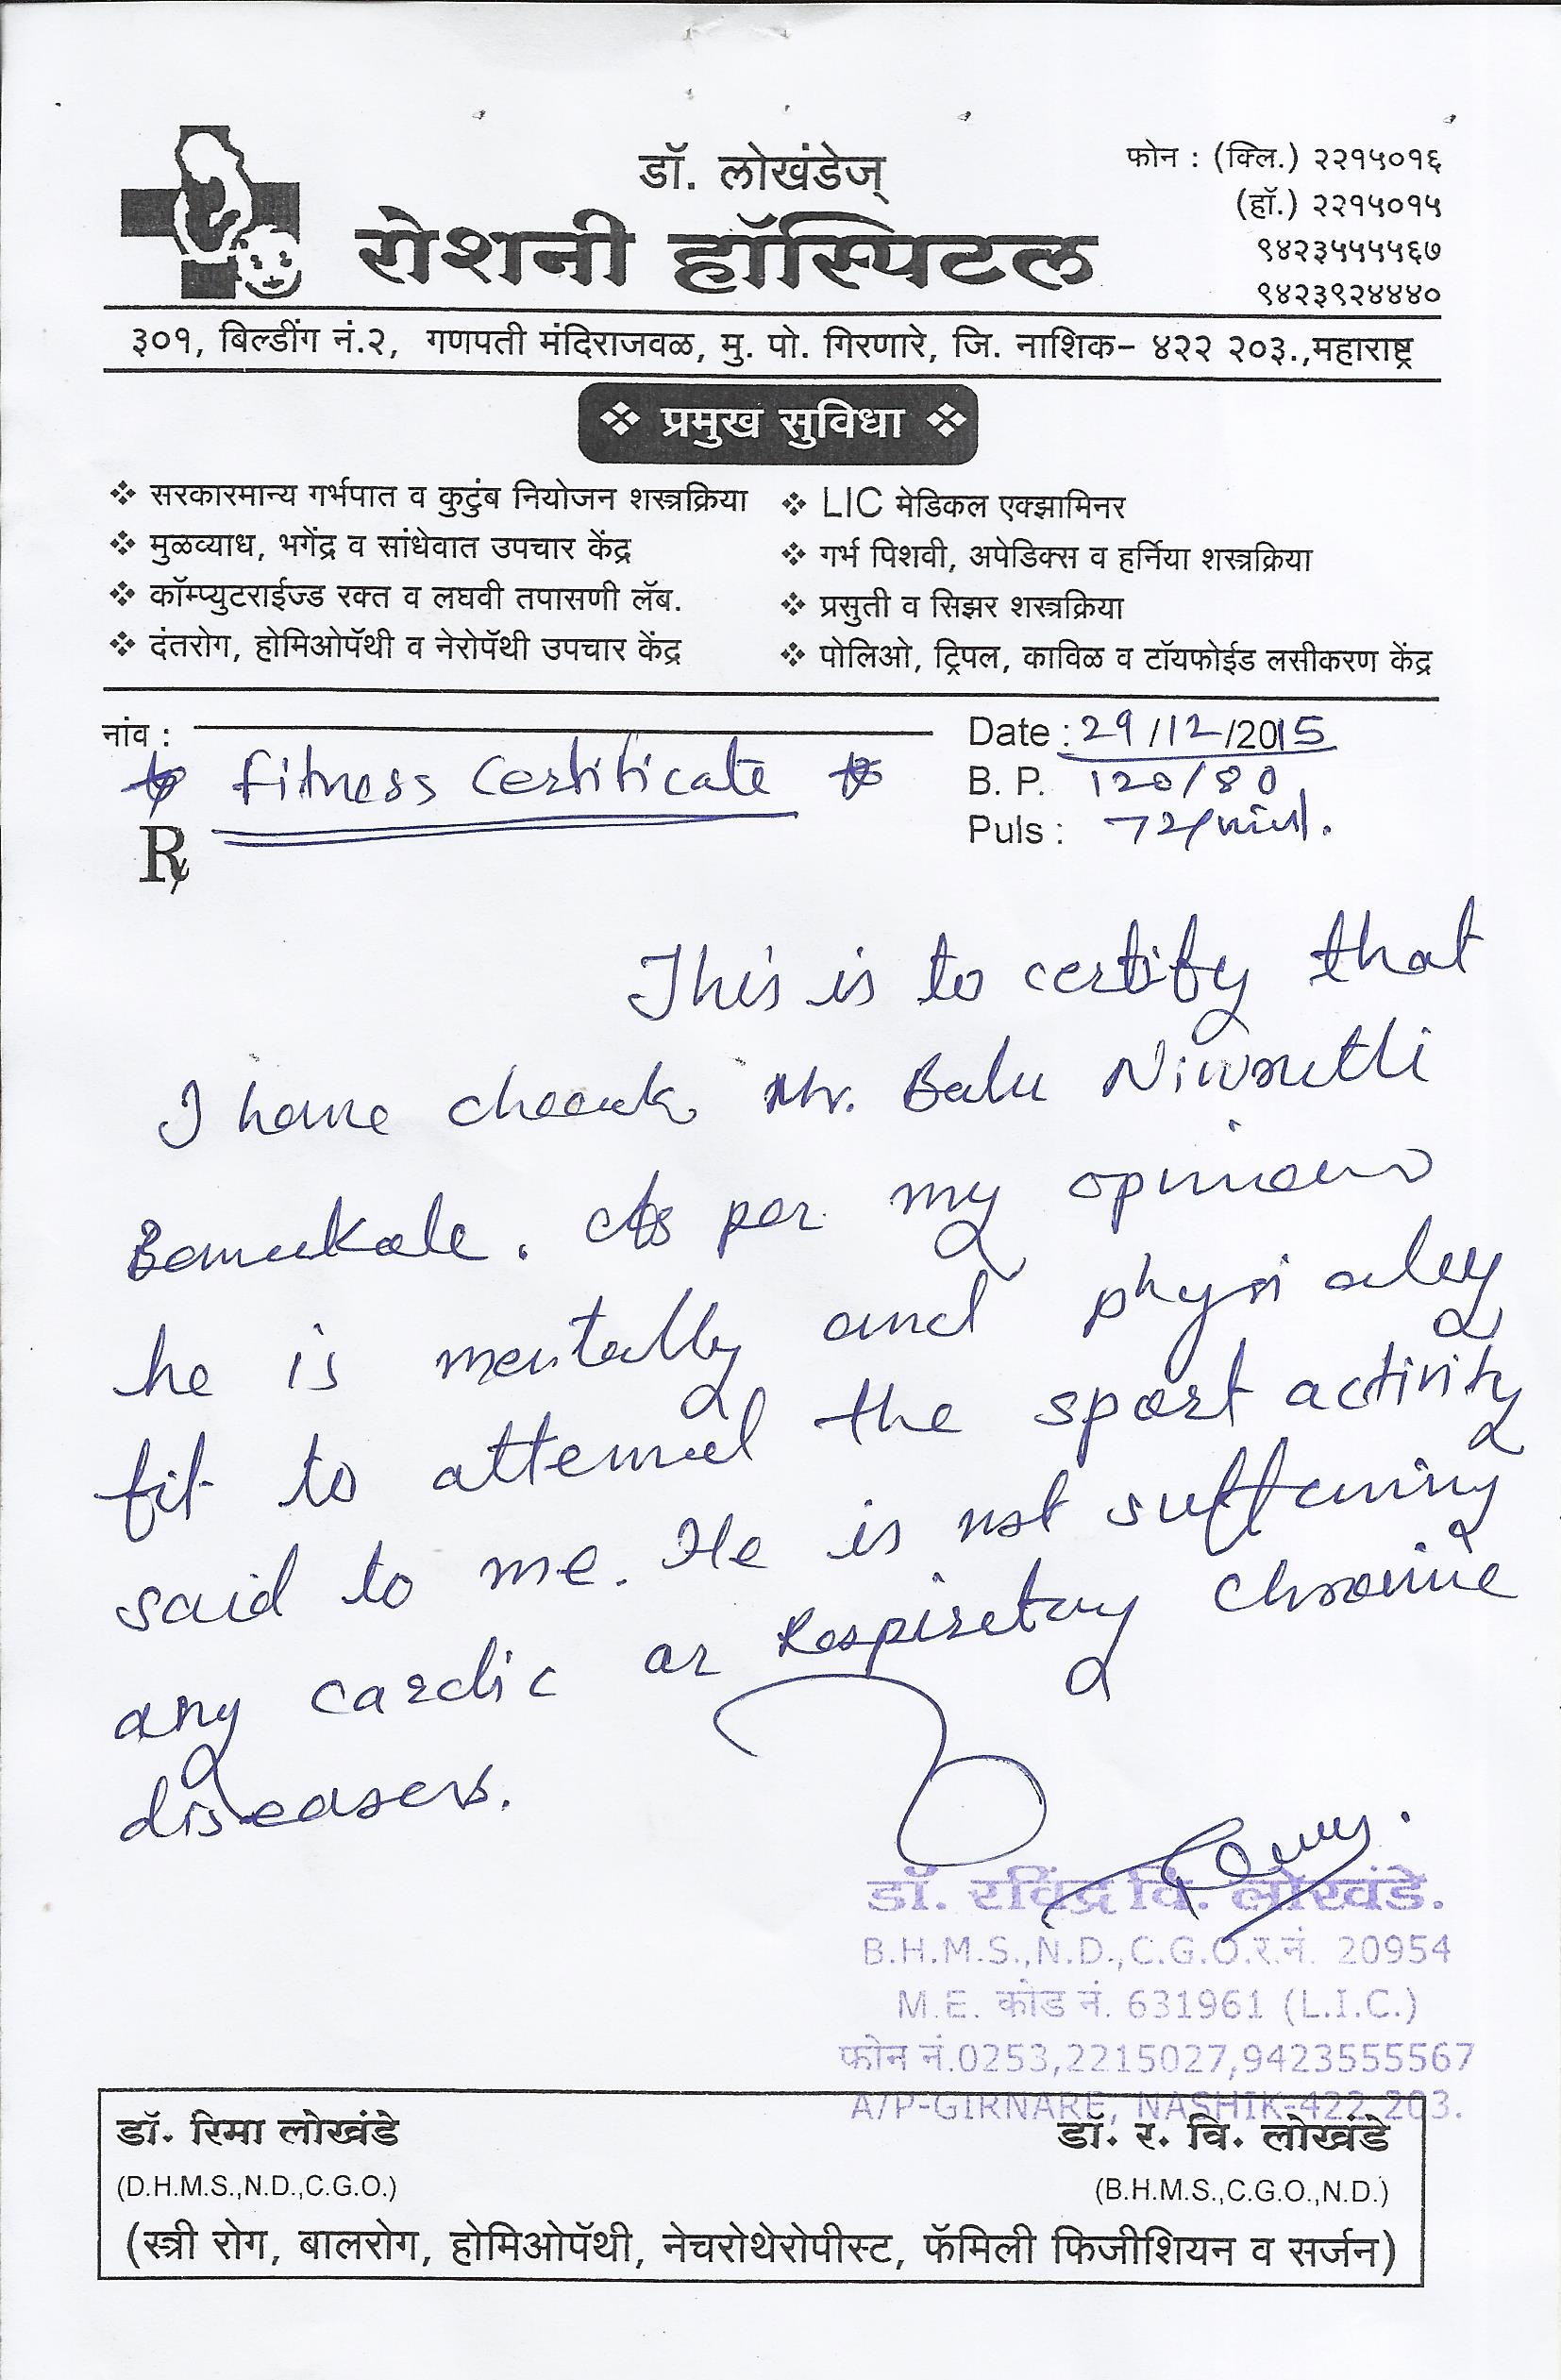 डॉ. लोखंडेज्
रोशनी हॉस्पिटल
फोन : (क्लि.) २२१५०१६
(हॉ.) २२१५०१५
९४२३५५५५६७
९४२३९२४४४०
३०१, बिल्डींग नं.२, गणपती मंदिराजवळ, मु. पो. गिरणारे, जि. नाशिक- ४२२ २०३.,महाराष्ट्र
❖ प्रमुख सुविधा ❖
❖ सरकारमान्य गर्भपात व कुटुंब नियोजन शस्त्रक्रिया
❖ मुळव्याध, भगेंद्र व सांधेवात उपचार केंद्र
❖ कॉम्प्युटराईज्ड रक्त व लघवी तपासणी लॅब.
❖ दंतरोग, होमिओपॅथी व नेरोपॅथी उपचार केंद्र
❖ LIC मेडिकल एक्झामिनर
❖ गर्भ पिशवी, अपेडिक्स व हर्निया शस्त्रक्रिया
❖ प्रसुती व सिझर शस्त्रक्रिया
❖ पोलिओ, ट्रिपल, काविळ व टॉयफोईड लसीकरण केंद्र
नांव :
Date : 29/12/2015
Fitness Certificate
B. P. 120/80
Puls : 72/min.
R
This is to certify that
I have Mr. Balu Niwrutti
Bomukale. As per my opinion
he is mentally and physialy
fit to attend the sport activity
said to me. He is not suffering
any cardic or Respiretory chronic
diseases.
डॉ. रविंद्र वि. लोखंडे.
B.H.M.S.,N.D.,C.G.O.र.नं. 20954
M.E. कोड नं. 631961 (L.I.C.)
फोन नं.0253,2215027,9423555567
A/P-GIRNARE, NASHIK-422 203.
डॉ. रिमा लोखंडे
(D.H.M.S.,N.D.,C.G.O.)
डॉ. र. वि. लोखंडे
(B.H.M.S.,C.G.O.,N.D.)
(स्त्री रोग, बालरोग, होमिओपॅथी, नेचरोथेरोपीस्ट, फॅमिली फिजीशियन व सर्जन)